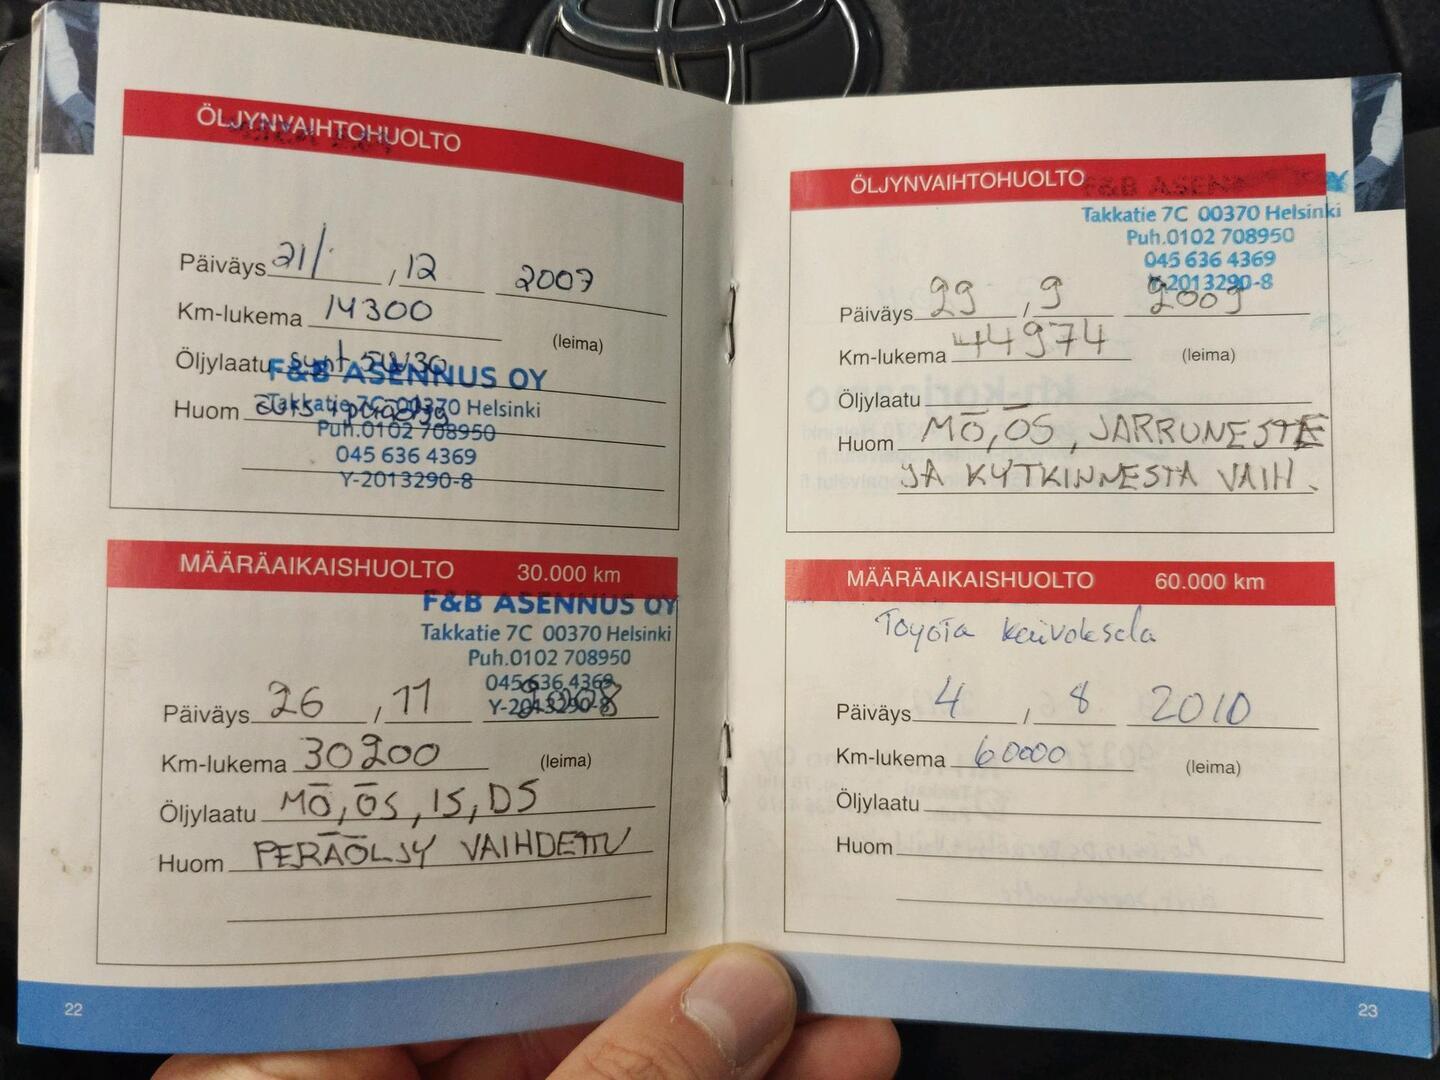 ÖLJYNVAIHTOHUOLTO
Päiväys 21/ , 12 2007
Km-lukema 14300
(leima)
Öljylaatu synt 5W30
F&B ASENNUS OY
Takkatie 7C 00370 Helsinki
Huom
Puh.0102 708950
045 636 4369
Y-2013290-8
MÄÄRÄAIKAISHUOLTO 30.000 km
F&B ASENNUS OY
Takkatie 7C 00370 Helsinki
Puh.0102 708950
045 636 4369
Y-2013290-8
Päiväys 26 , 11 2008
Km-lukema 30200 (leima)
Öljylaatu MÖ, ÖS, IS, DS
Huom PERÄÖLJY VAIHDETTU
22
ÖLJYNVAIHTOHUOLTO
F&B ASENNUS OY
Takkatie 7C 00370 Helsinki
Puh.0102 708950
045 636 4369
Y-2013290-8
Päiväys 29 , 9 2009
Km-lukema 44974 (leima)
Öljylaatu
Huom MÖ, ÖS, JARRUNESTE
JA KYTKINNESTA VAIH.
MÄÄRÄAIKAISHUOLTO 60.000 km
Toyota
Päiväys 4 , 8 2010
Km-lukema 60000
(leima)
Öljylaatu
Huom
23